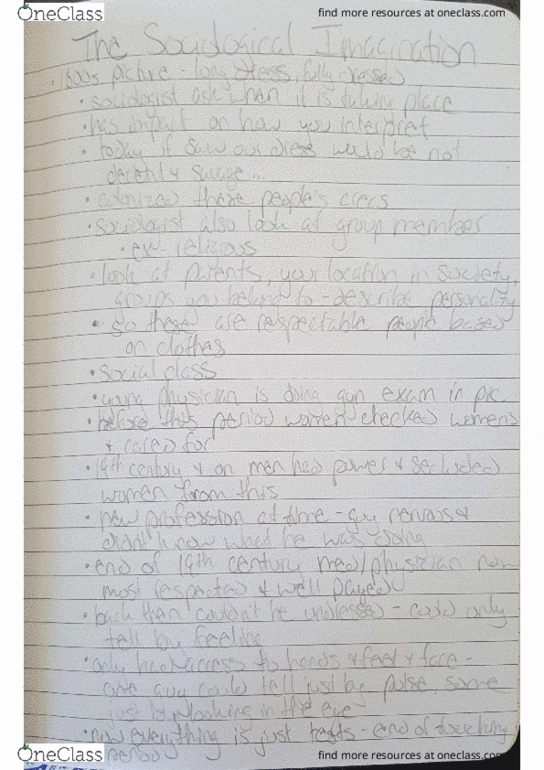 OneClass
find more resources at oneclass.com
The Sociological Imagination
• 1800s picture - long dress, fully dressed
• sociologist ask when it is taking place
• has impact on how you interpret
• today if saw our dress would be not
decent & savage...
• colonized these people's areas
• sociologist also look at group member
• ex: religious
• look at parents, your location in society,
groups you belong to - describe personality
• so these are respectable people bases
on clothes
• social class
• young physician is doing gyn exam in pic
• before this period women checked womens
+ cared for
• 19th century & on men had power & secluded
women from this
• new profession at time - guy nervous &
didn't know what he was doing
• end of 19th century med/physician now
most respected & well payed
• back then couldn't be undressed - could only
tell by feeling
• only had access to hands & feet & face -
one guy could tell just by pulse, some
just by looking in the eye
• now everything is just tests - end of touching
period
OneClass
find more resources at oneclass.com